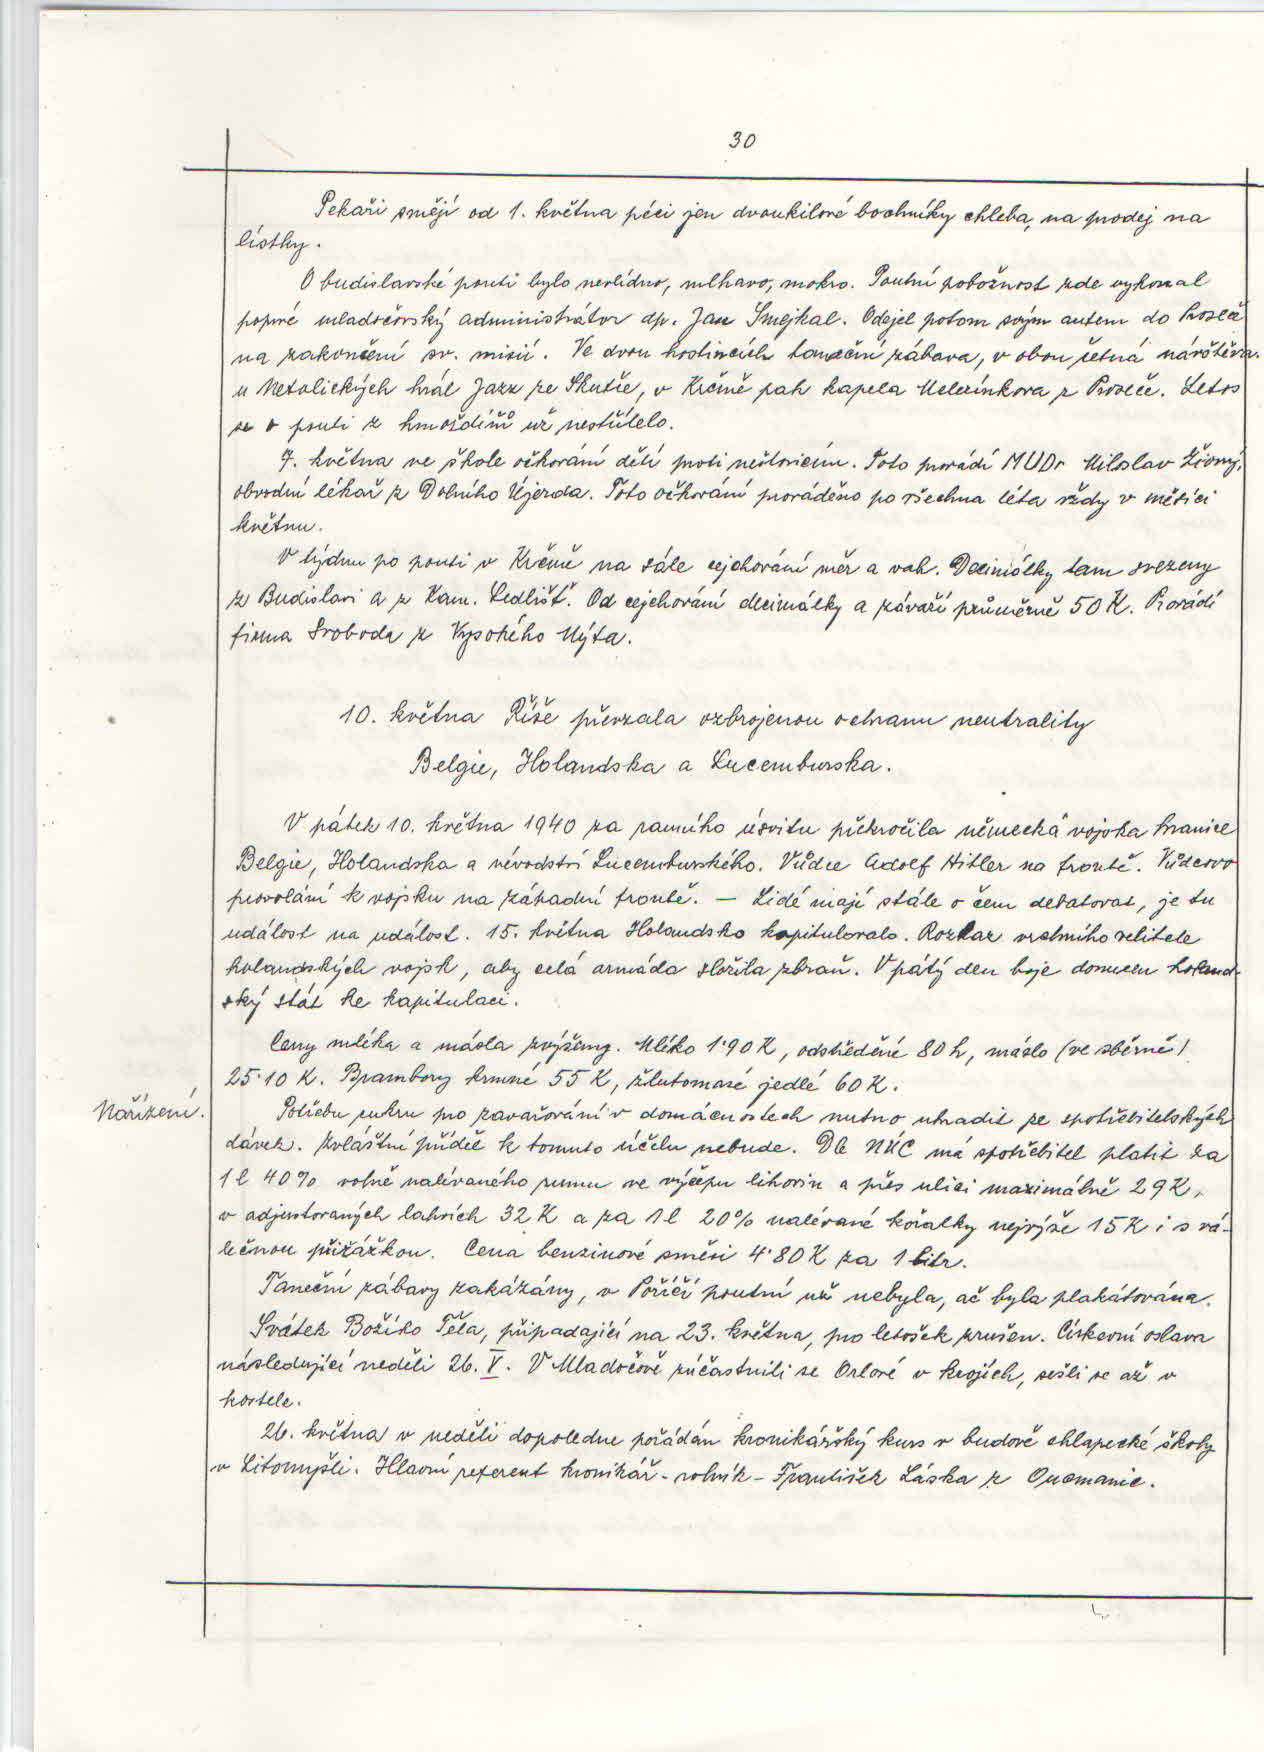 30
Pekaři smějí od 1. května péci jen dvoukilové bochníky chleba, na prodej na
lístky.
O budislavské pouti bylo nevlídno, mlhavo, mokro. Poutní pobožnost zde vykonal
poprvé mladočovský administrátor dp. Jan Šmejkal. Odejel potom svým autem do Proseče
na zakončení sv. misií. Ve dvou hostincích taneční zábava, v obou četná návštěva.
u Metalických hrál Jazz ze Skutče, v Krčmě pak kapela z Proseče. Letos
se o pouti z hmoždířů už nestřílelo.
7. května ve škole očkování dětí proti neštovicím. Toto provádí MUDr Miloslav Živný,
obvodní lékař z Dolního Újezda. Toto očkování prováděno po všechna léta vždy v měsíci
květnu.
V týdnu po pouti v Krčmě na sále cejchování měr a vah. Decimálky tam svezeny
z Budislavi a z Kam. Sedlišť. Od cejchování decimálky a závaží průměrně 50 K. Provádí
firma Svoboda z Vysokého Mýta.
10. května Říše převzala ozbrojenou ochranu neutrality
Belgie, Holandska a Lucemburska.
V pátek 10. května 1940 za ranního úsvitu překročila německá vojska hranice
Belgie, Holandska a vévodství Lucemburského. Vůdce Adolf Hitler na frontě. Vůdcovo
provolání k vojsku na západní frontě. — Lidé mají stále o čem debatovat, je tu
událost na událost. 15. května Holandsko kapitulovalo. Rozkaz vrchního velitele
holandských vojsk, aby celá armáda složila zbraň. V pátý den boje donucen holand-
ský stát ke kapitulaci.
Ceny mléka a másla zvýšeny. Mléko 1·90 K, odstředěné 80 h, máslo (ve sběrně)
25·10 K. Brambory krmné 55 K, žlutomasé jedlé 60 K.
Nařízení.
Potřebu cukru pro zavařování v domácnostech nutno uhradit ze spotřebitelských
dávek. Zvláštní příděl k tomuto účelu nebude. Dle NÚC má spotřebitel platit za
1 l 40% volně nalévaného rumu ve výčepu lihovin a přes ulici maximálně 29 K,
v adjustovaných lahvích 32 K a za 1 l 20% nalévané kořalky nejvýše 15 K i s vá-
lečnou přirážkou. Cena benzinové směsi 4·80 K za 1 litr.
Taneční zábavy zakázány, v Poříčí poutní už nebyla, ač byla plakátována.
Svátek Božího Těla, připadající na 23. května, pro letošek zrušen. Církevní oslava
následující neděli 26. V. V Mladočově zúčastnili se Orlové v krojích, sešli se až v
kostele.
26. května v neděli dopoledne pořádán kronikářský kurs v budově chlapecké školy
v Litomyšli. Hlavní referent kronikář - rolník - František Láska z Oucmanic.